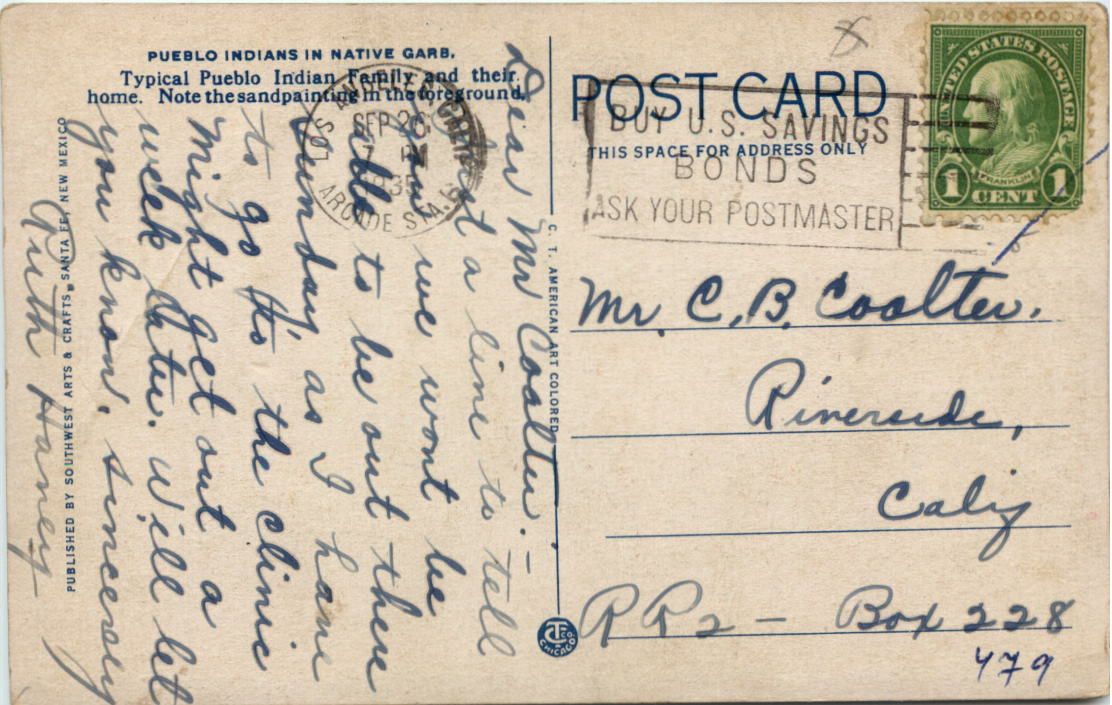 PUEBLO INDIANS IN NATIVE GARB.
Typical Pueblo Indian Family and their
home. Note the sandpainting in the foreground.
Dear Mr Coalter. —
Just a line to tell
you we wont be
able to be out there
Sunday, as I have
to go to the clinic
Might get out a
week later. Will let
you know. Sincerely
Ruth Haney
PUBLISHED BY SOUTHWEST ARTS & CRAFTS, SANTA FE, NEW MEXICO
LOS ANGELES, CALIF.
SEP 26
7 PM
ARCADE STA.
C. T. AMERICAN ART COLORED
CHICAGO
POST CARD
THIS SPACE FOR ADDRESS ONLY
BUY U.S. SAVINGS
BONDS
ASK YOUR POSTMASTER
UNITED STATES POSTAGE
FRANKLIN
1 CENT 1
Mr. C. B. Coalter.
Riverside,
Calif
RR2 — Box 228
479